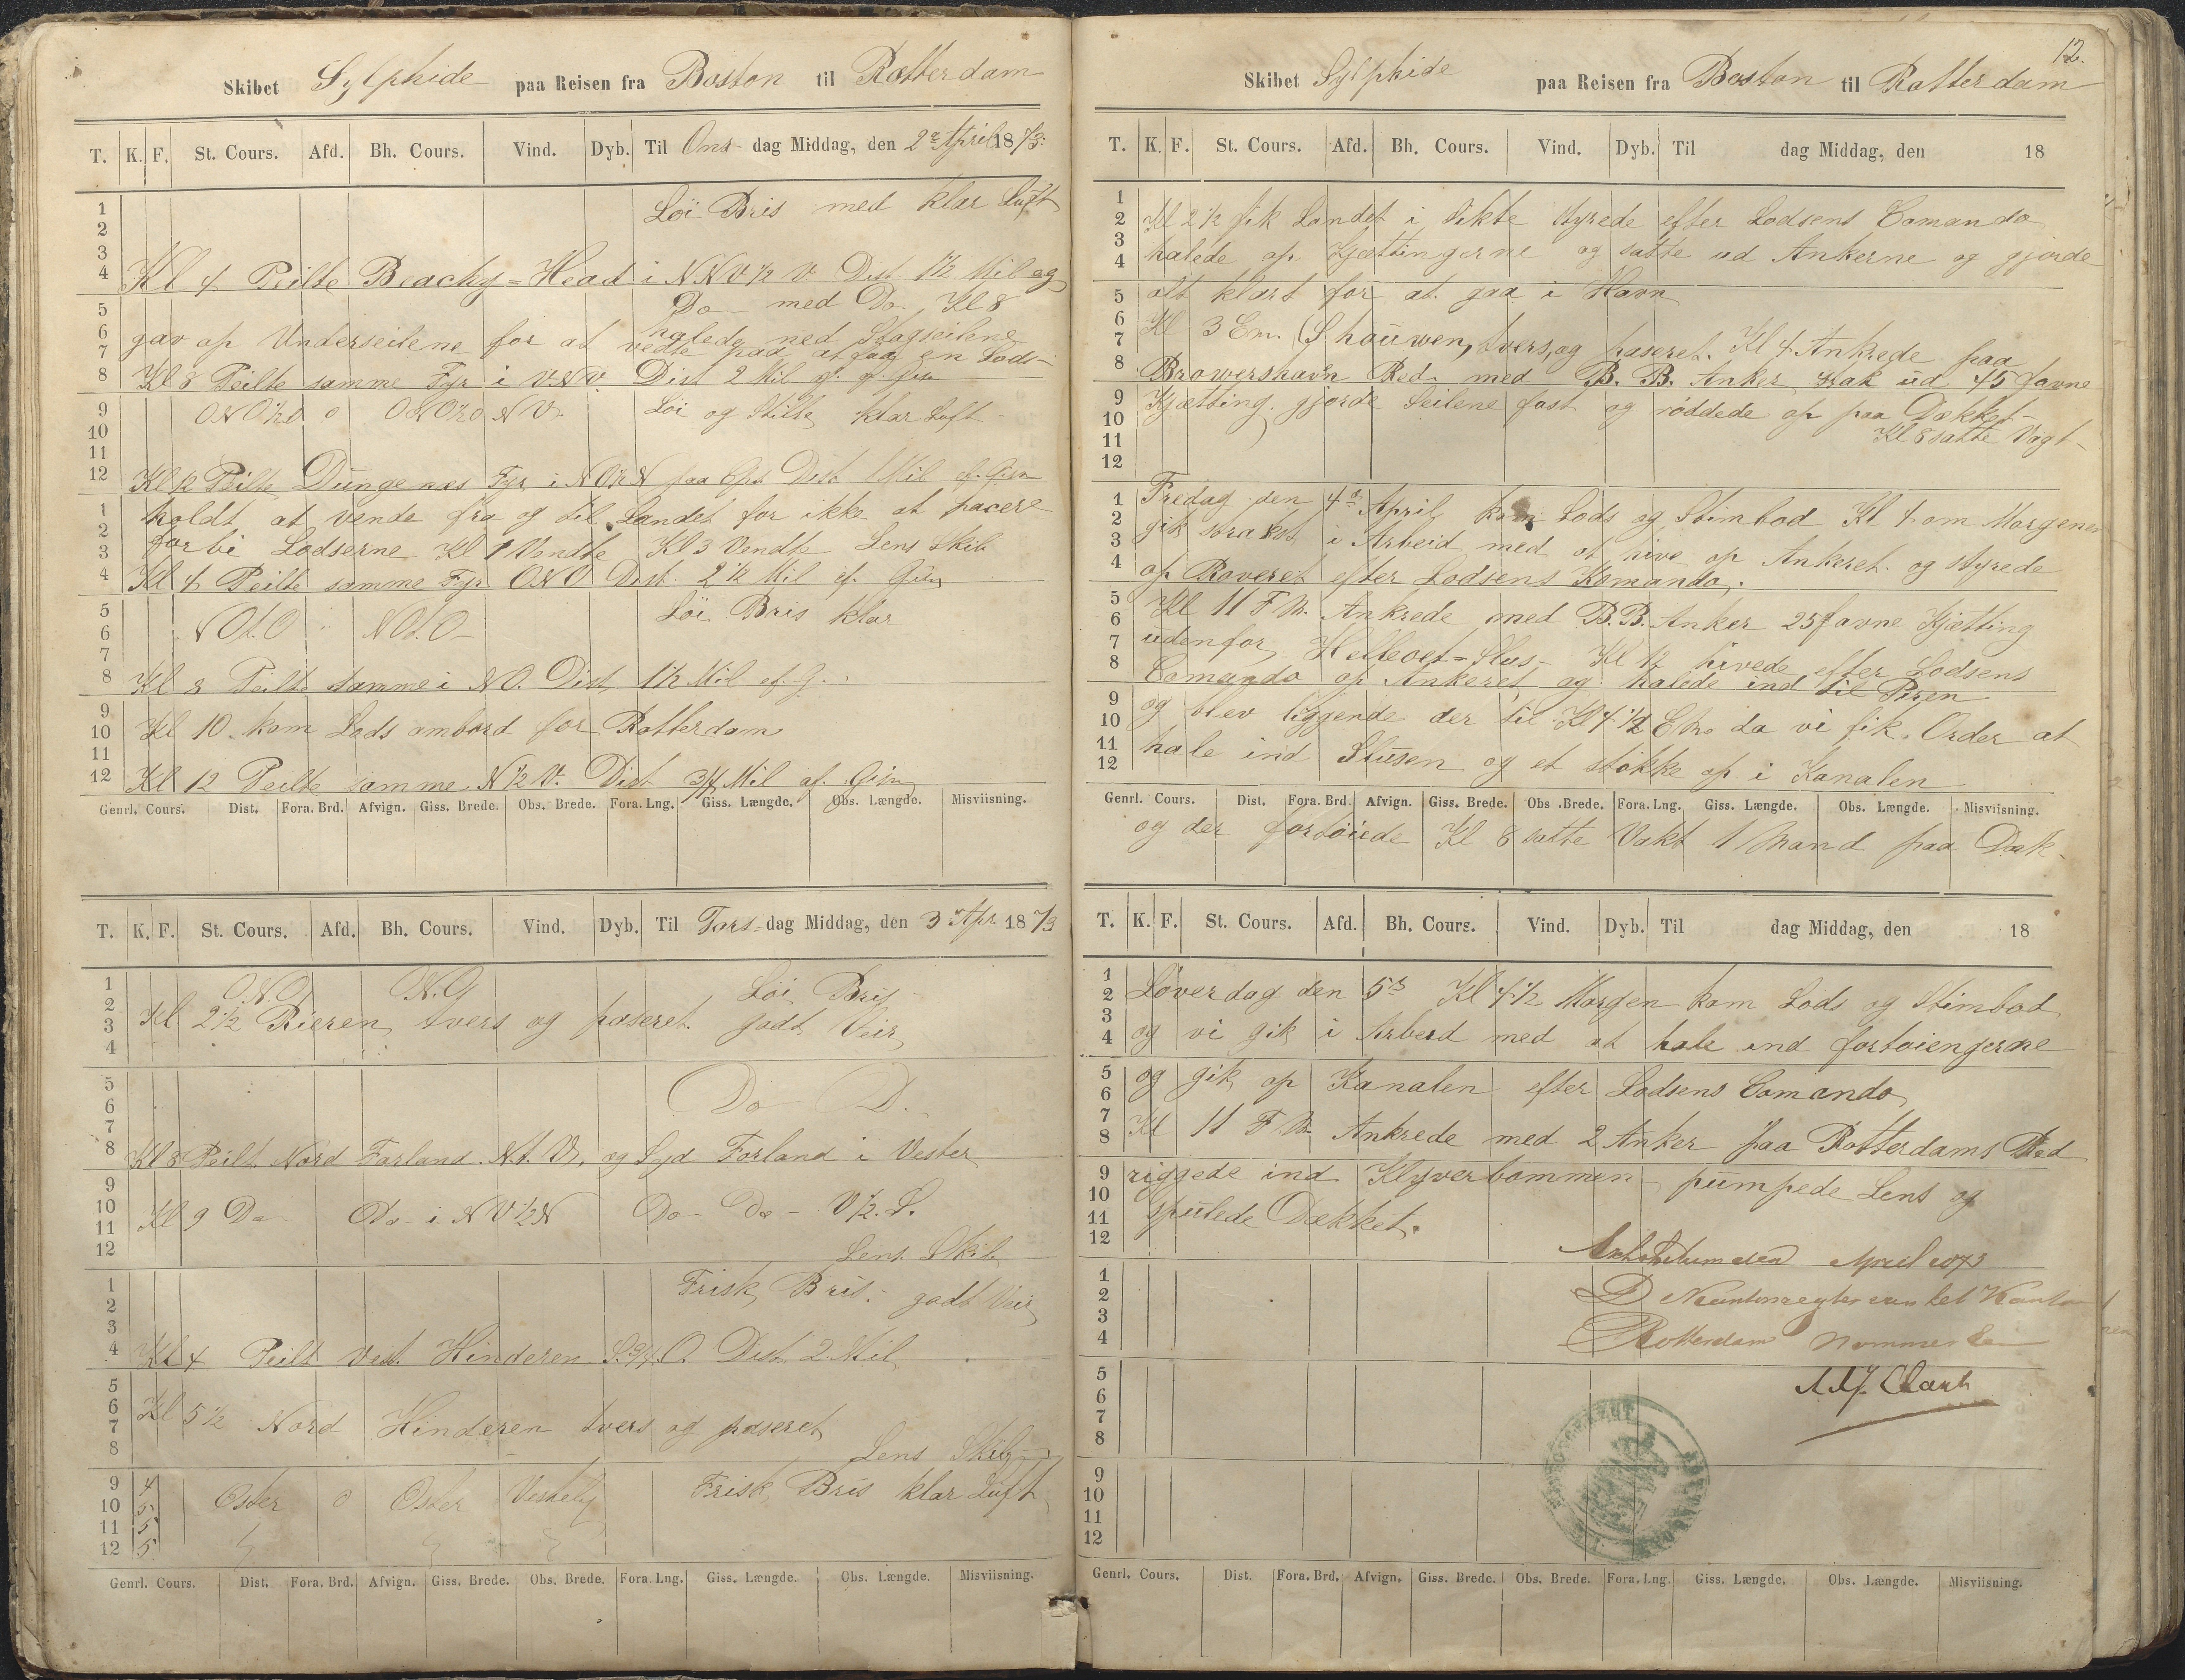 Skibet Sylphide paa Reisen fra Boston til Rotterdam
T. K. F. St. Cours. Afd. Bh. Cours. Vind. Dyb. Til Ons- dag Middag, den 2d April 1873.
1
2
3
4
Löi Bris med klar Luft
Kl 4 Peilte Beachy=Head i NNV½V Dist. 1½ Mil og
Do med Do. Kl 8
5
6
7
8
gav op Underseilene for at halede ned Stagseilene
vente paa at faa en Lods-
Kl 8 Peilte samme Fyr i V.N.V. Dist 2 Mil
9
10
11
12
ONO½O 0 ONO½O NV. Löi og Stille klar Luft
Kl 12 Peilte Dungenæs Fyr i NO½N Dist 1 Mil af. Gisn
1
2
3
4
holdt at vende fra og til Landet for ikke at pacere
forbi Lodserne Kl 1 Vendte Kl 3 Vendte Lens Skib
Kl 4 Peilte samme Fyr ONO Dist. 2½ Mil ef. Gisn
5
6
7
8
NOt.O NOt.O- Löi Bris klar
Kl 8 Peilte samme i NO. Dist, 1½ Mil ef. G.
9
10
11
12
Kl 10 kom Lods ombord for Rotterdam
Kl 12 Peilte samme N½V. Dist 3/4 Mil af. Gisn
Genrl. Cours. Dist. Fora. Brd. Afvign. Giss. Brede. Obs. Brede. Fora. Lng. Giss. Længde. Obs. Længde. Misviisning.
T. K. F. St. Cours. Afd. Bh. Cours. Vind. Dyb. Til Tors- dag Middag, den 3 Apr 1873
1
2
3
4
O.N.O. N.O Löi Bris
Kl 2½ Rieren tvers og paseret. godt Veir
5
6
7
8
Do D.
Kl 8 Peilt Nord Forland N.t.V. og Syd Forland i Vester
9
10
11
12
Kl 9 Do Do- i NV½N Do- Do- V½.S.
Lens Skib
1
2
3
4
Frisk Bris. godt Veir
Kl 4 Peilt Vest. Hinderen O Dist 2 Mil
5
6
7
8
Kl 5½ Nord Hinderen tvers og paseret
Lens Skib
9 4
10 5
11 5
12 5
Oster 0 Oster Vestelig Frisk Bris klar Luft
Genrl. Cours. Dist. Fora. Brd. Afvign. Giss. Brede. Obs. Brede. Fora. Lng. Giss. Længde. Obs. Længde. Misviisning.
12.
Skibet Sylphide paa Reisen fra Boston til Rotterdam
T. K. F. St. Cours. Afd. Bh. Cours. Vind. Dyb. Til dag Middag, den 18
1
2
3
4
Kl 2½ fik Landet i Sikte styrede efter Lodsens Comando
halede op Kjættingerne og satte ud Ankerne og gjorde
5
6
7
8
alt klart for at gaa i Havn
Kl 3 Em. Shouwen, tvers, og paseret. Kl 4 Ankrede paa
Browershavn Red med B.B. Anker stak ud 45 favne
9
10
11
12
Kjætting gjorde Seilene fast og röddede op paa Dækket-
Kl 8 satte Vagt-
1
2
3
4
Fredag den 4de April kom Lods og Stimbod Kl 4 om Morgenen
gik straks i Arbeid med at hive op Ankeret og styrede
op Roveret efter Lodsens Komando.
5
6
7
8
Kl 11 F M. Ankrede med B.B. Anker 25 favne Kjætting
udenfor Helleoet=Slus- Kl 12 hivede efter Lodsens
Comando op Ankeret og halede ind til Piren
9
10
11
12
og blev liggende der til Kl 4½ E M. da vi fik Order at
hale ind Slusen og et støkke op i Kanalen
Genrl. Cours. Dist. Fora. Brd. Afvign. Giss. Brede. Obs. Brede. Fora. Lng. Giss. Længde. Obs. Længde. Misviisning.
og der fortöiede Kl 8 satte Vakt 1 Mand paa Dæk-
T. K. F. St. Cours. Afd. Bh. Cours. Vind. Dyb. Til dag Middag, den 18
1
2
3
4
Löverdag den 5te Kl 4½ Morgen kom Lods og Stimbod
og vi gik i Arbeid med at hale ind fortöiengerne
5
6
7
8
og gik op Kanalen efter Lodsens Comando
Kl 11 F M. Ankrede med 2 Anker paa Rotterdams Red
9
10
11
12
riggede ind Klyverbommen pumpede Lens og
Spulede Dækket.
April 1873
1
2
3
4
Rotterdam
5
6
7
8
9
10
11
12
Genrl. Cours. Dist. Fora. Brd. Afvign. Giss. Brede. Obs. Brede. Fora. Lng. Giss. Længde. Obs. Længde. Misviisning.